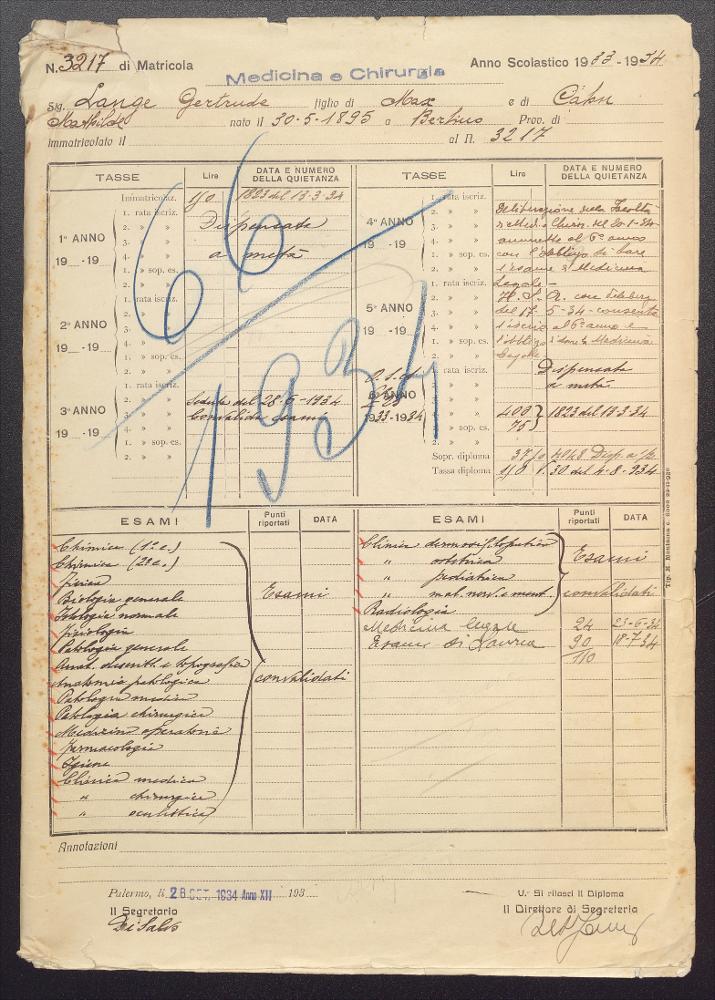 N. 3217 di Matricola
Medicina e Chirurgia
Anno Scolastico 1933-1934
Sig. Lange Gertrude figlio di Max e di Cahn
Mathilde nato il 30-5-1895 a Berlino Prov. di
Immatricolato il al N. 3217
TASSE Lire DATA E NUMERO DELLA QUIETANZA
Immatricolaz. 150 1823 del 13-3-34
1. rata iscriz. Dispensata
2. » »
1º ANNO 3. » »
19 -19 4. » »
1. » sop. es. a metà
2. » »
1. rata iscriz.
2. » »
2º ANNO 3. » »
19 -19 4. » »
1. » sop. es.
2. » »
1. rata iscriz.
2. » » Seduta del 28-6-1934
3º ANNO 3. » » Convalida esami
19 -19 4. » »
1. » sop. es.
2. » »
66
1934
TASSE Lire DATA E NUMERO DELLA QUIETANZA
1. rata iscriz. Deliberazione della Facoltà
2. » » di Med. e Chirur. del 20-1-34
4º ANNO 3. » » ammette al 6º anno
19 -19 4. » » con l'obbligo di fare
1. » sop. es. l'esame di Medicina
2. » » Legale -
1. rata iscriz. H. S. A. con deliber.
2. » » del 17-5-34 consente
5º ANNO 3. » » l'iscriz. al 6º anno e
19 -19 4. » » l'obbligo
1. » sop. es. Legale
2. » »
1. rata iscriz. Dispensata
2. » » a metà
6º ANNO 3. » »
1933-1934 4. » » 400 1823 del 13-3-34
1. » sop. es. 75
2. » »
Sopr. diploma 37,50 4048
Tassa diploma 150 1.30 del 4-8-934
ESAMI Punti riportati DATA
Chimica (1º c.)
Chimica (2º c.)
Fisica
Biologia generale Esami
Istologia normale
Fisiologia
Patologia generale
Anat. descritt. e topografica
Anatomia patologica convalidati
Patologia medica
Patologia chirurgica
Medicina operatoria
Farmacologia
Igiene
Clinica medica
" chirurgica
" oculistica
ESAMI Punti riportati DATA
Clinica dermosifilopatica
" ostetrica Esami
" pediatrica
" mal. nerv. e ment. convalidati
Radiologia
Medicina legale 24 23-6-34
Esame di Laurea 90/110 18-7-34
Annotazioni
Palermo, lì 26 OTT. 1934 Anno XII 193
V.º Si rilasci il Diploma
Il Segretario
Il Direttore di Segreteria
Di Salvo
Tip. M. Montaina